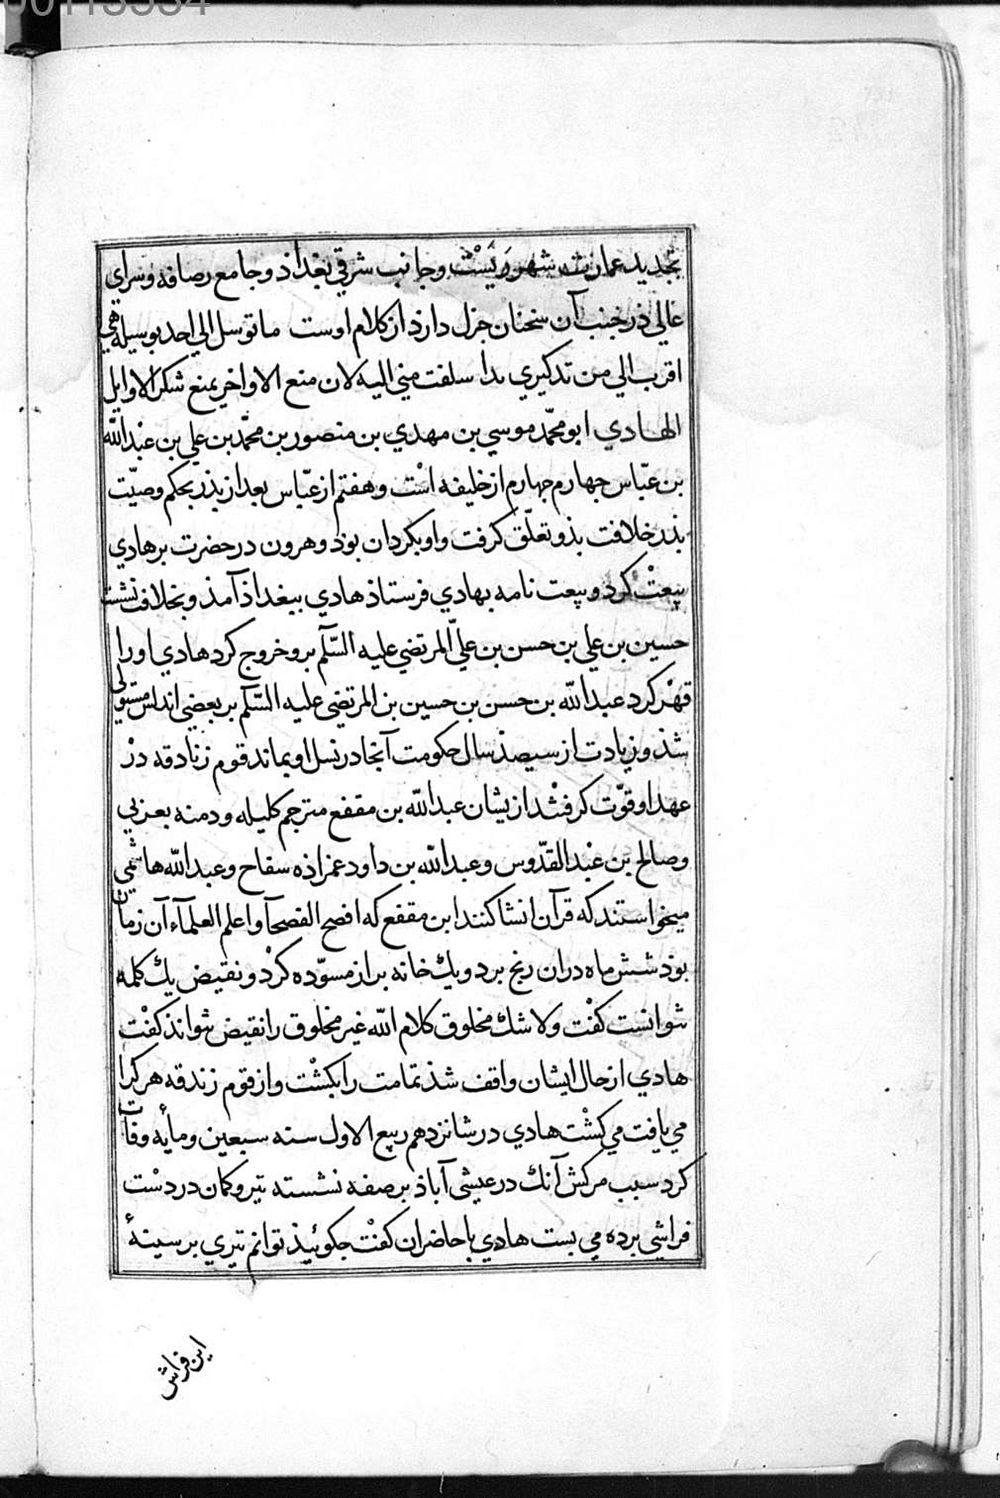 00113534
تجدید عمارت شهر ریست و جانب شرقی بغداذ و جامع رصافه و سرای
عالی ذر جنب آن سخنان جزل دارذ از کلام اوست ما توسل الی احد بوسیلة هی
اقرب الی من تذکیری یدا سلفت منی الیه لان منع الاواخر یمنع شکر الاوایل
الهادی ابو محمّد موسی بن مهدی بن منصور بن محمّد بن علی بن عبدالله
بن عبّاس جهارم جهارم از خلیفه است و هفتم از عبّاس بعد از بذر بحکم وصیّت
بذر خلافت بذو تعلّق کرفت و او بکردان بوذ و هرون در حضرت بر هادی
بیعت کرد و بیعت نامه بهادی فرستاذ هادی ببغداذ آمذ و بخلافت نشست
حسین بن علی بن حسن بن علیّ المرتضی علیه السّلم برو خروج کرد هادی او را
قهر کرد عبدالله بن حسن بن حسین بن المرتضی علیه السّلم بر بعضی اندلس مستولی
شذ و زیادت از سیصذ سال حکومت آنجا در نسل او بماند قوم زنادقه در
عهد او قوّت کرفتند ازیشان عبدالله بن مقفع مترجم کلیله و دمنه بعربی
و صالح بن عبد القدّوس و عبدالله بن داود عمزاذه سفاح و عبدالله هاشمی
میخواستند که قرآن انشا کنند ابن مقفع که افصح الفصحآ و اعلم العلمآء آن زمان
بوذ شش ماه دران رنج برد و یك خانه براز مسوّده کرد و نقیض یك کلمه
نتوانست کفت ولا شك مخلوق کلام الله غیر مخلوق را نقیض نتواند کفت
هادی از حال ایشان واقف شذ تمامت را بکشت و از قوم زندقه هر کرا
می یافت می کشت هادی در شانزدهم ربیع الاول سنه سبعین و مأیه وفات
کرد سبب مرکش آنك در عیسی آباذ بر صفه نشسته تیر و کمان در دست
فراشی برده می بست هادی با حاضران کفت جکوئیذ توانم تیری بر سینهٔ
این فراش